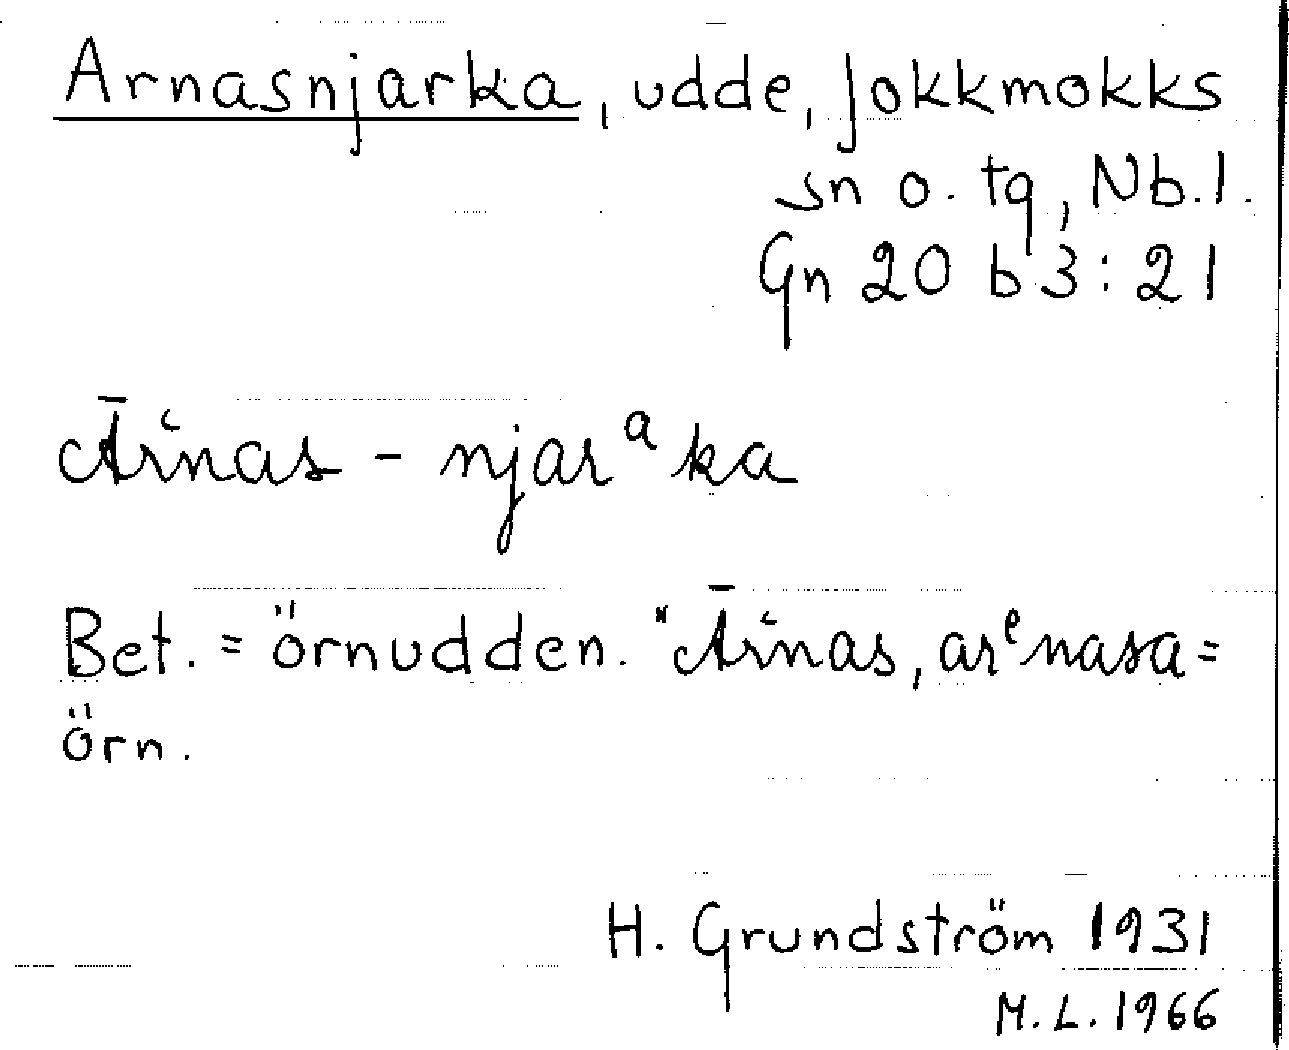 Arnasnjarka, udde, Jokkmokks
sn o. tg, Nb.l.
Gn 20 b 3:21
Ārʿnas - njarᵃka
Bet. = örnudden. "Ārʿnas, arᵉnasa =
örn.
H. Grundström 1931
M.L. 1966